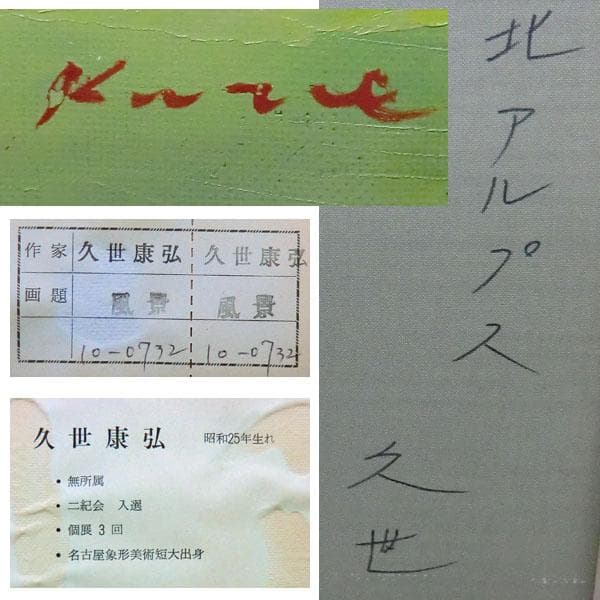 Kuze
作家 久世康弘 久世康弘
画題 風景 風景
10-0732 10-0732
久世康弘 昭和25年生れ
• 無所属
• 二紀会 入選
• 個展 3 回
• 名古屋象形美術短大出身
北アルプス
久世